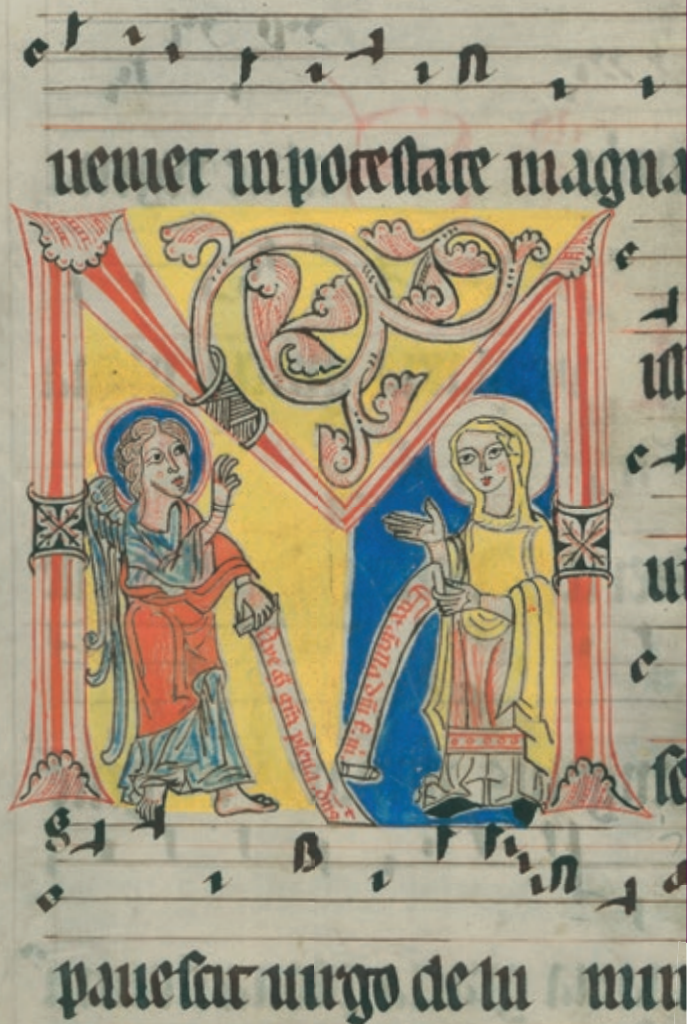 ueniet in potestate magna
M
ill
Aue ma gra plena dns
Ecce ancilla dni
ui
se
pauescit uirgo de lu mi